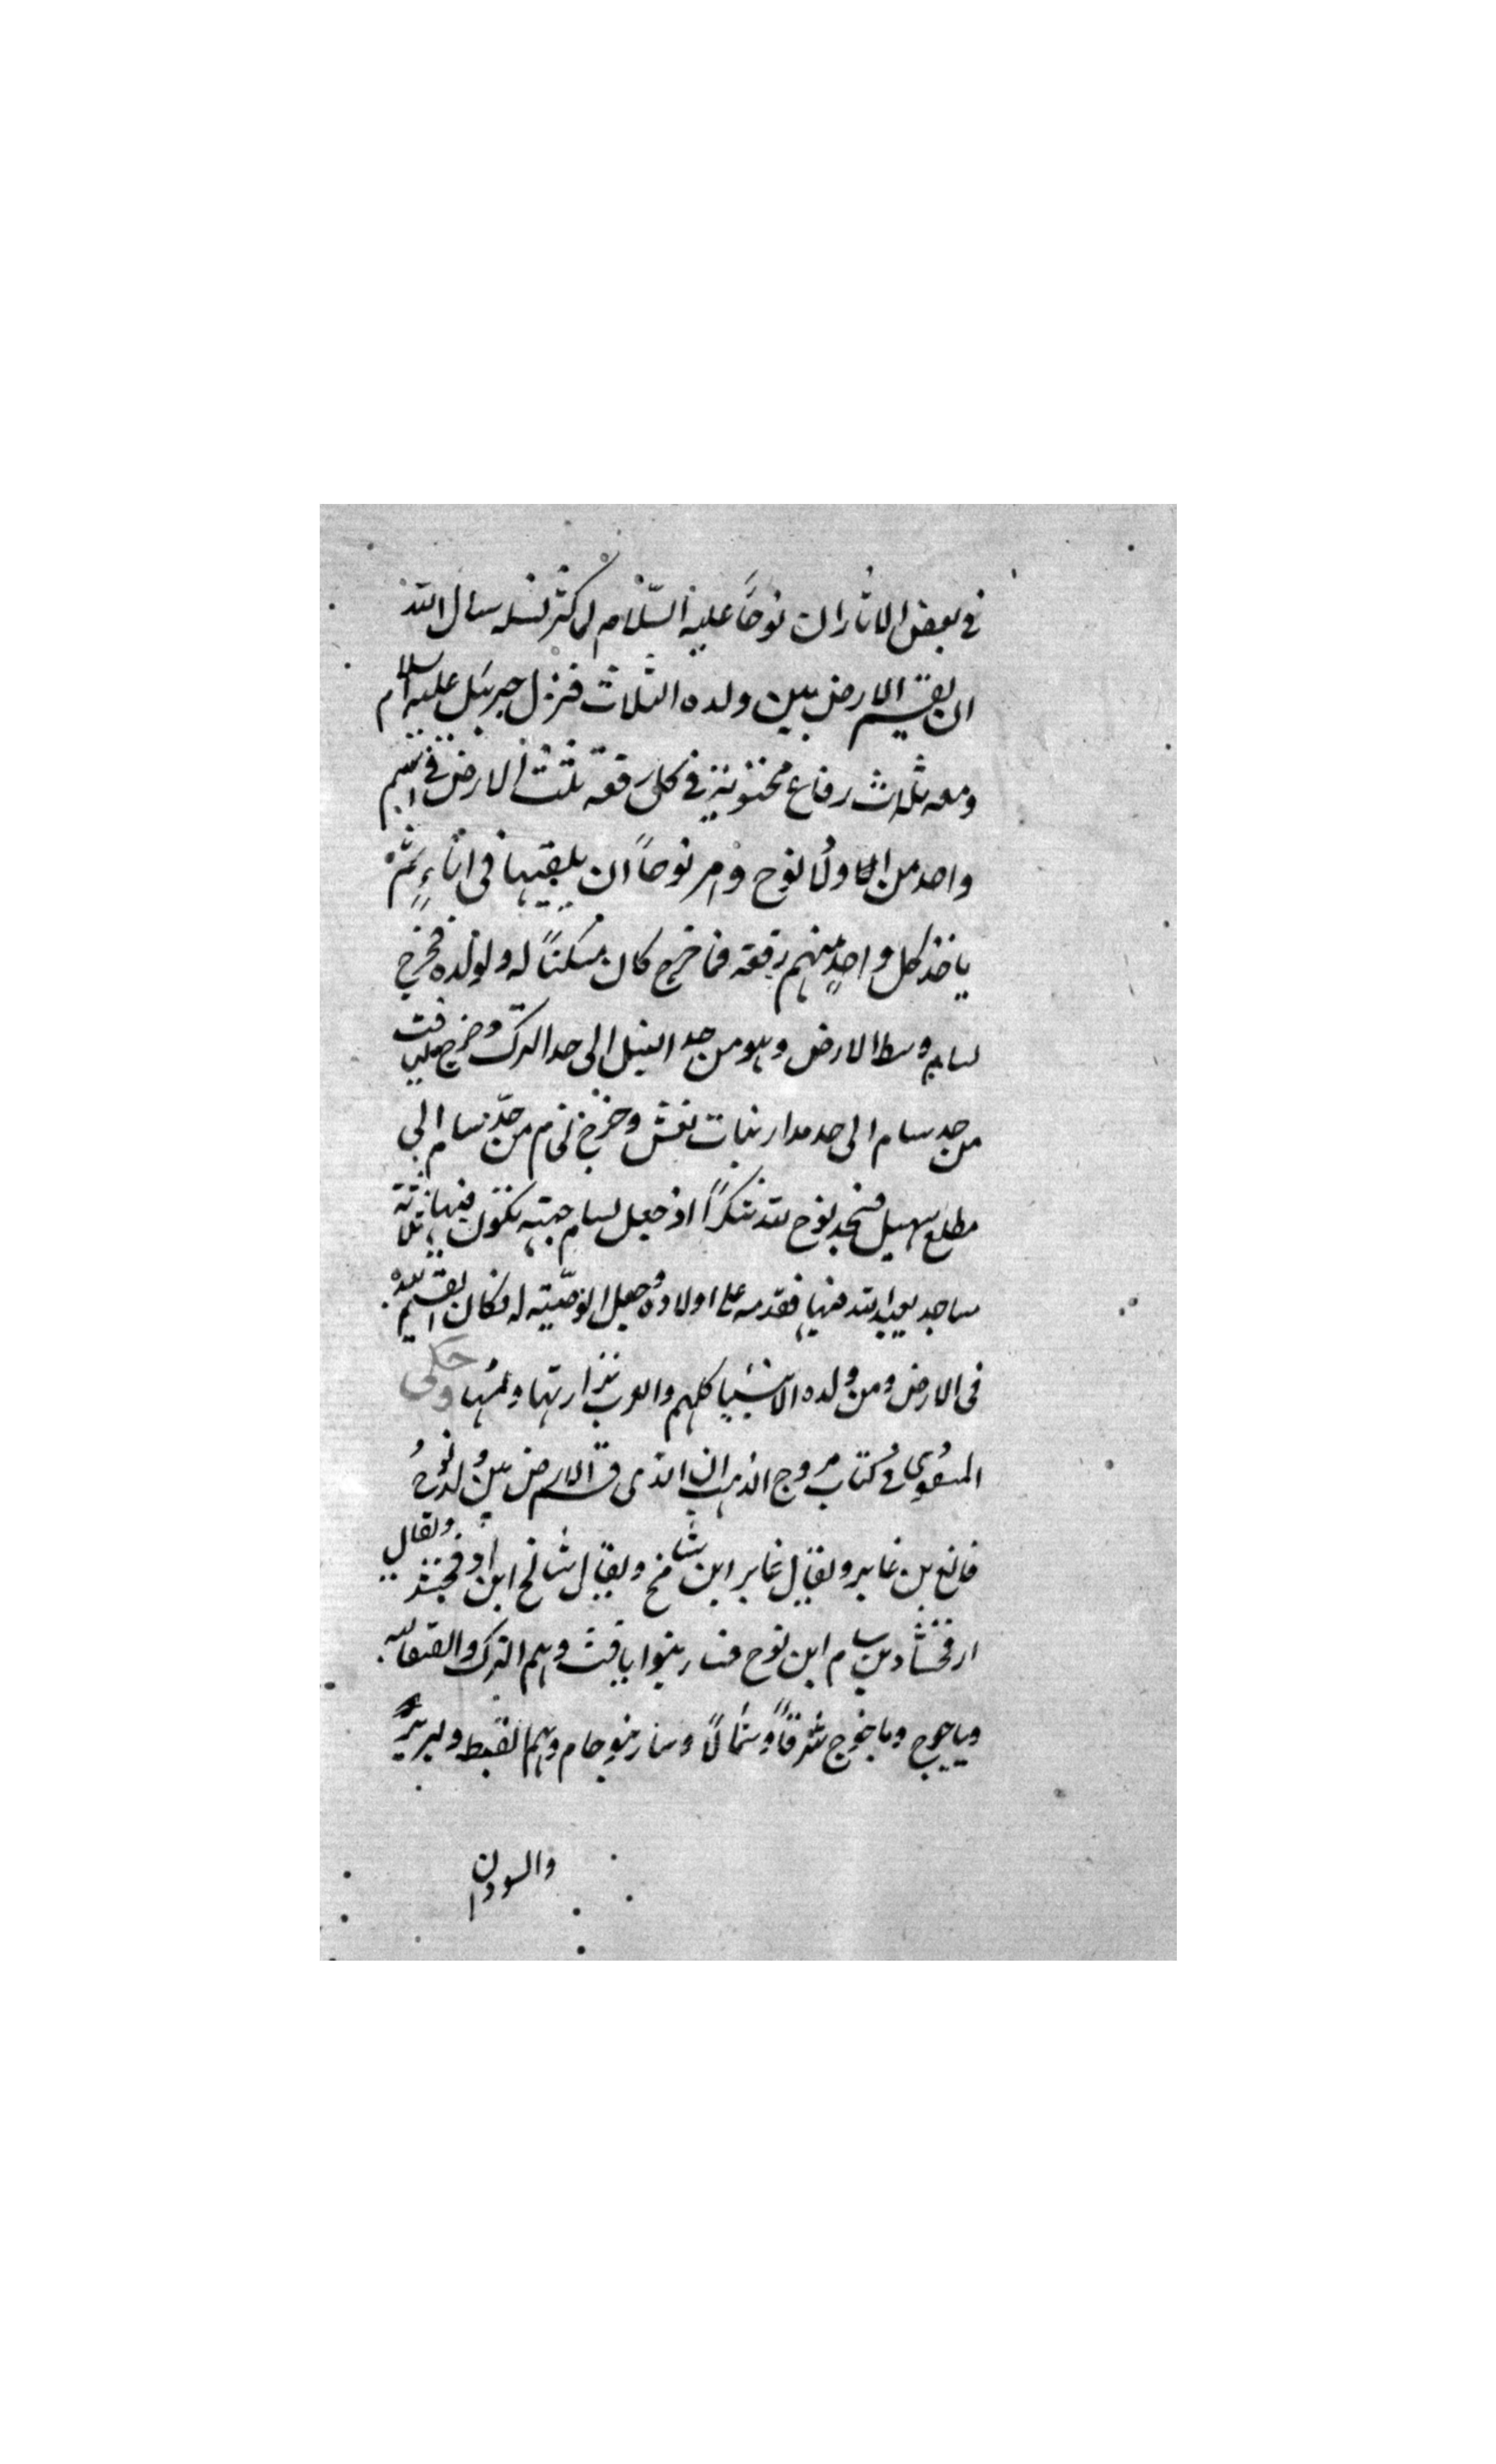 في بعض الاثار ان نوحاً عليه السّلام لما كثر نسله سال الله
ان يقسم الارض بين ولده الثلاث فنزل جبرئيل عليه السلام
ومعه ثلاث رقاع مختومة في كل رقعة ثلث الارض في اسم
واحد من اولاد نوح وامر نوحاً ان يلقيها فى اناءٍ ثمّ
ياخذ كل واحدٍ منهم رقعة فما خرج كان مسكناً له ولولده فخرج
لسام وسط الارض وهو من حد النيل الى حد الترك وخرج ليافت
من حد سام الى حد مدار بنات نعش وخرج لحام من حدّ سام الى
مطلع سهيل فسجد نوح لله شكراً اذ جعل لسام جهة تكون فيها ثلاثة
مساجد يعبد الله فيها فقدمه على اولاده وجعل الوصّية له فكان
فى الارض ومن ولده الانبيا كلهم والعرب وحكى
المسعودي في كتاب مروج الذهب ان الذى قسم الارض بين ولد نوح
فالغ بن غابر ويقال عابر ابن شامخ ويقال شالخ ابن ارفخشد ويقال
ارفخشاد بن سام ابن نوح فسار بنوا يافث وهم الترك والصقالبه
وياجوج وماجوج شرقاً وشمالاً وسار بنو حام وهم القبط والبربر
والسودان